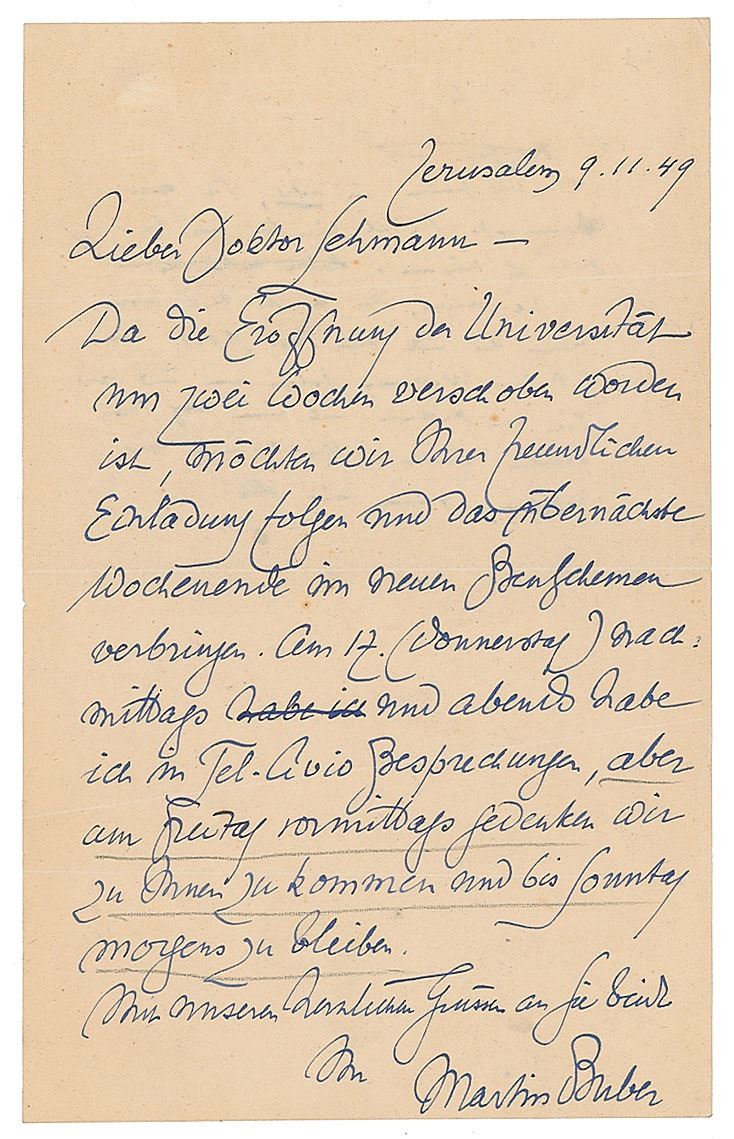 Jerusalem 9.11.49
Lieber Doktor Lehmann –
Da die Eröffnung der Universität
um zwei Wochen verschoben worden
ist, möchten wir Ihrer freundlichen
Einladung folgen und das übernächste
Wochenende im neuen Ben Schemen
verbringen. Am 17. (Donnerstag) nach-
mittags habe ich und abends habe
ich in Tel-Aviv Besprechungen, aber
am Freitag vormittags gedenken wir
zu Ihnen zu kommen und bis Sonntag
morgens zu bleiben.
Mit unseren herzlichen Grüssen an Sie beide
Ihr Martin Buber